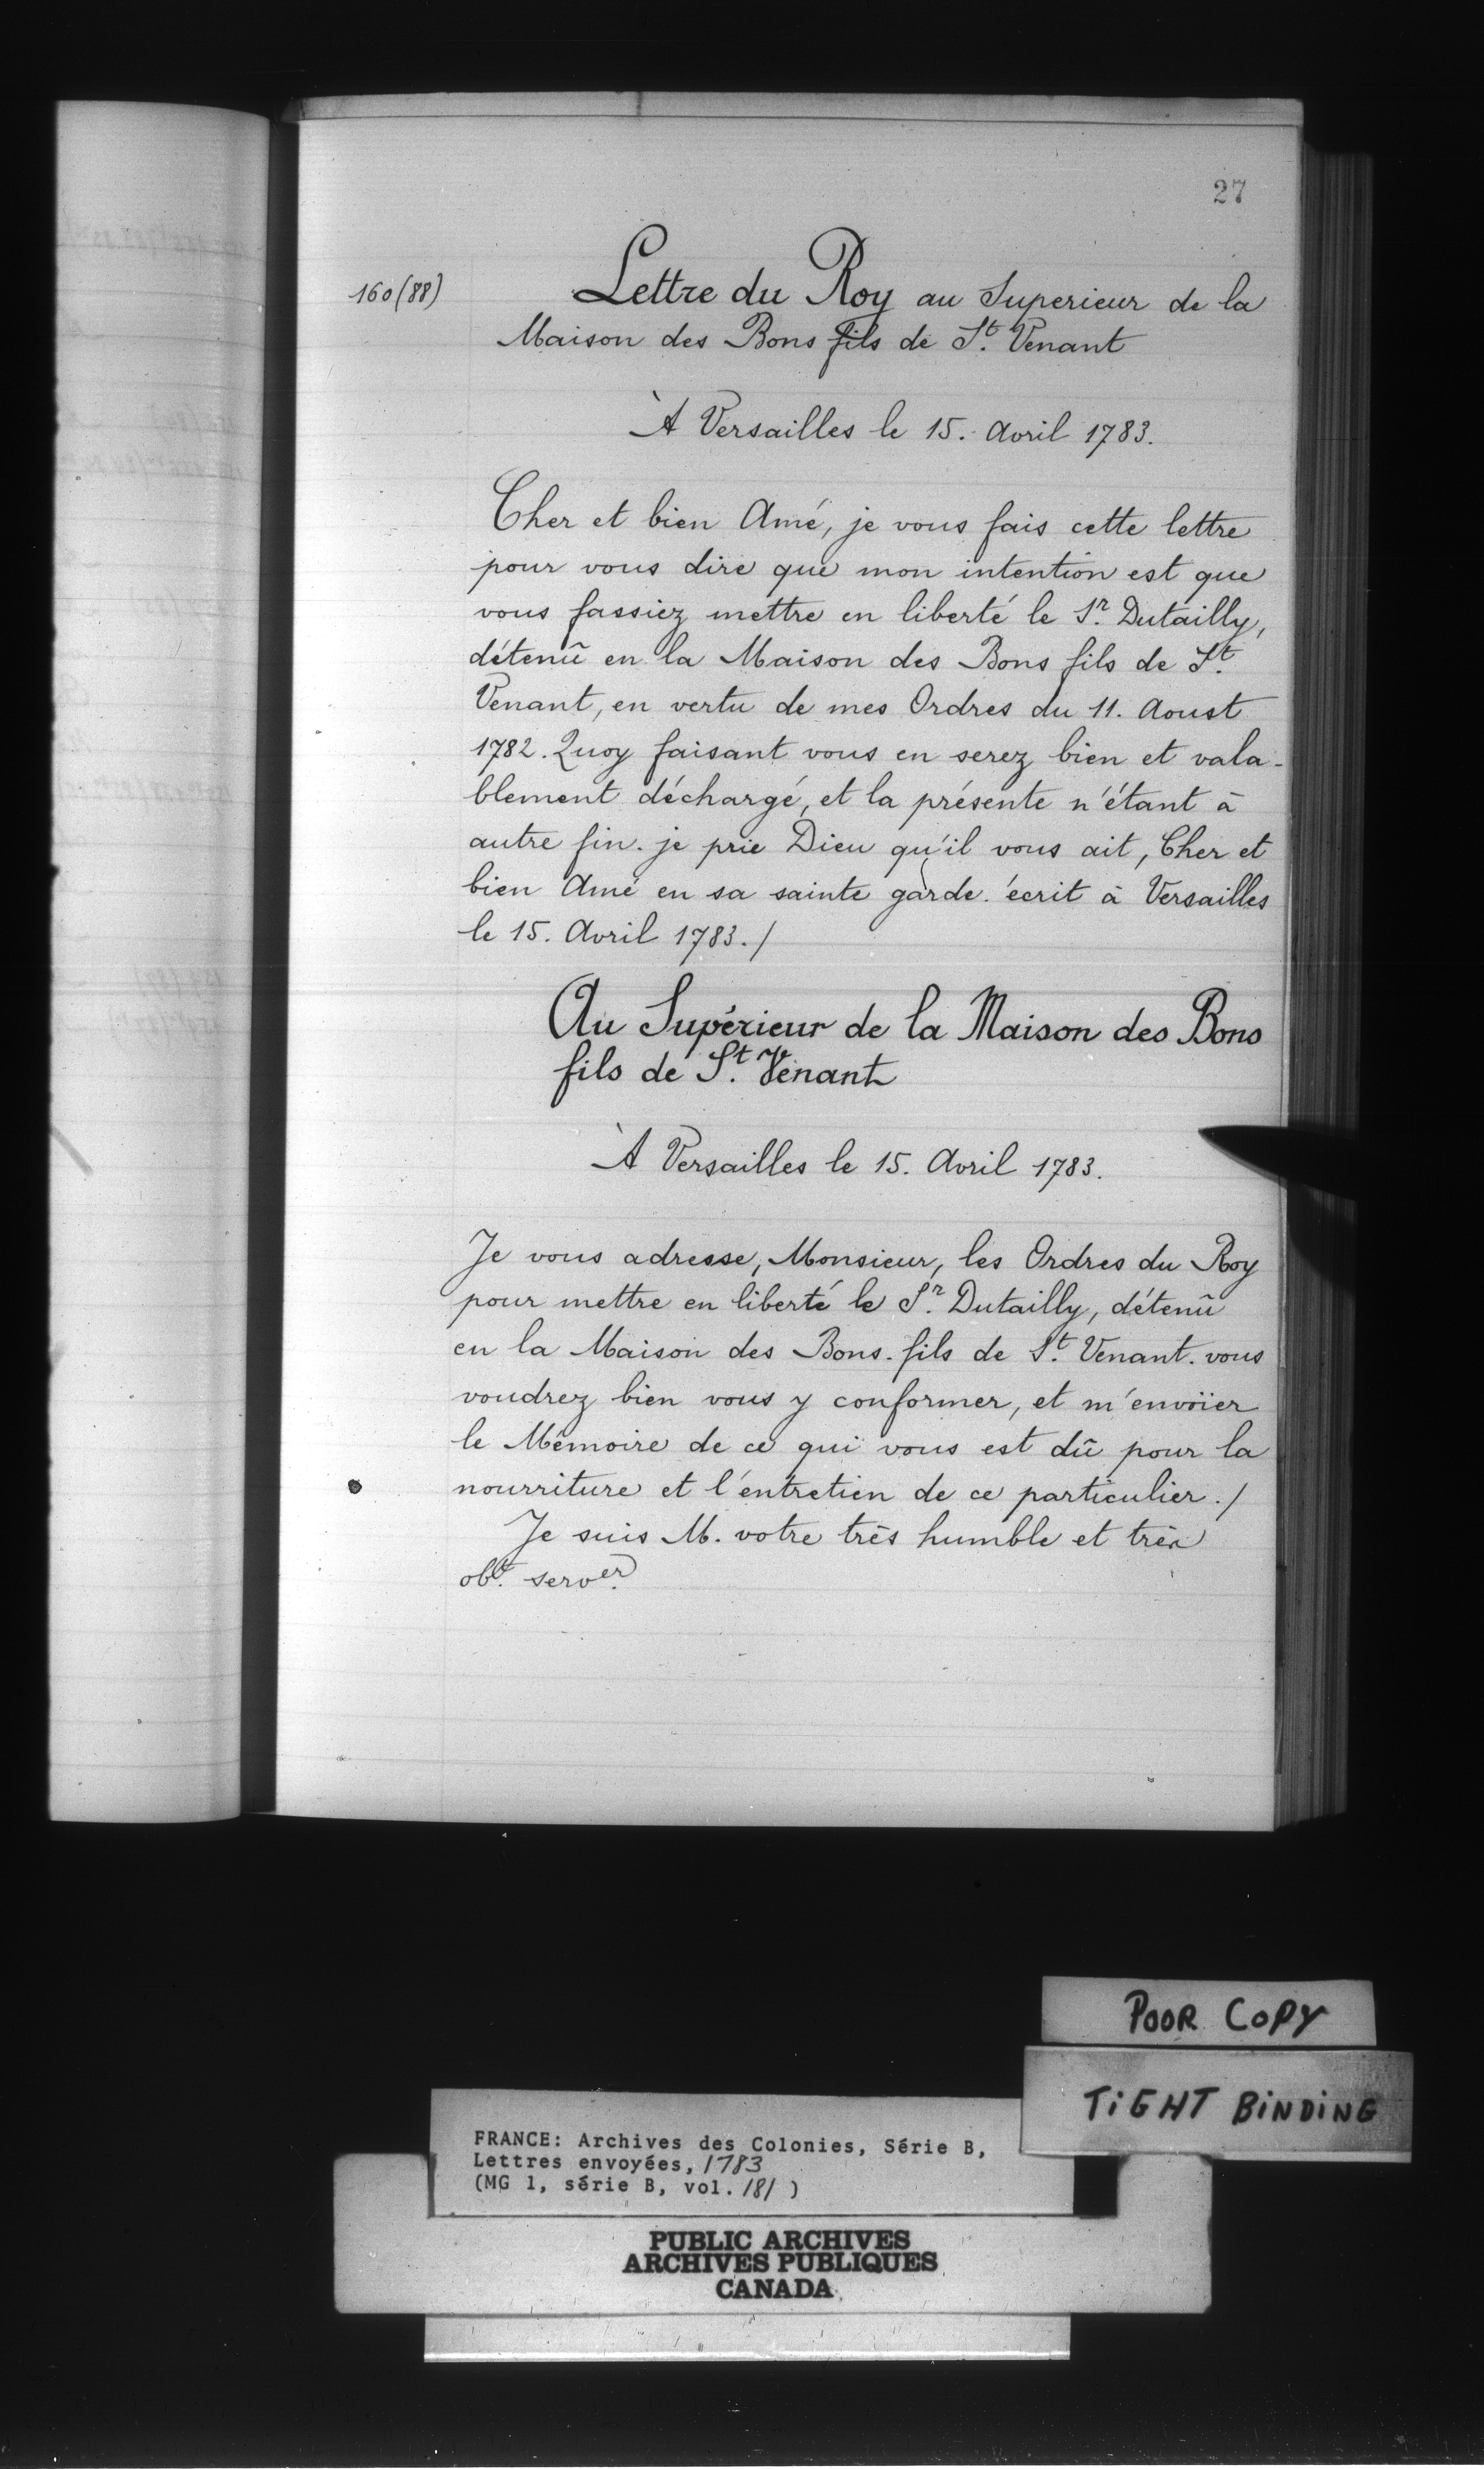 27
160 (88)
Lettre du Roy au Superieur de la
Maison des Bons fils de St. Venant
À Versailles le 15. Avril 1783.
Cher et bien Amé, je vous fais cette lettre
pour vous dire que mon intention est que
vous fassiez mettre en liberté le Sr. Dutailly,
détenû en la Maison des Bons fils de St.
Venant, en vertu de mes Ordres du 11. Aoust
1782. Quoy faisant vous en serez bien et vala-
blement déchargé, et la présente n'étant à
autre fin. je prie Dieu qu'il vous ait, Cher et
bien Amé en sa sainte garde. écrit à Versailles
le 15. Avril 1783./
Au Supérieur de la Maison des Bons
fils de St. Venant
À Versailles le 15. Avril 1783.
Je vous adresse, Monsieur, les Ordres du Roy
pour mettre en liberté le Sr. Dutailly, détenû
en la Maison des Bons-fils de St. Venant. vous
voudrez bien vous y conformer, et m'envoïer
le Mémoire de ce qui vous est dû pour la
nourriture et l'entretien de ce particulier./
Je suis M. votre très humble et très
obt. server.
POOR COPY
TiGHT BiNDiNG
FRANCE: Archives des Colonies, Série B,
Lettres envoyées, 1783
(MG 1, série B, vol. 181 )
PUBLIC ARCHIVES
ARCHIVES PUBLIQUES
CANADA